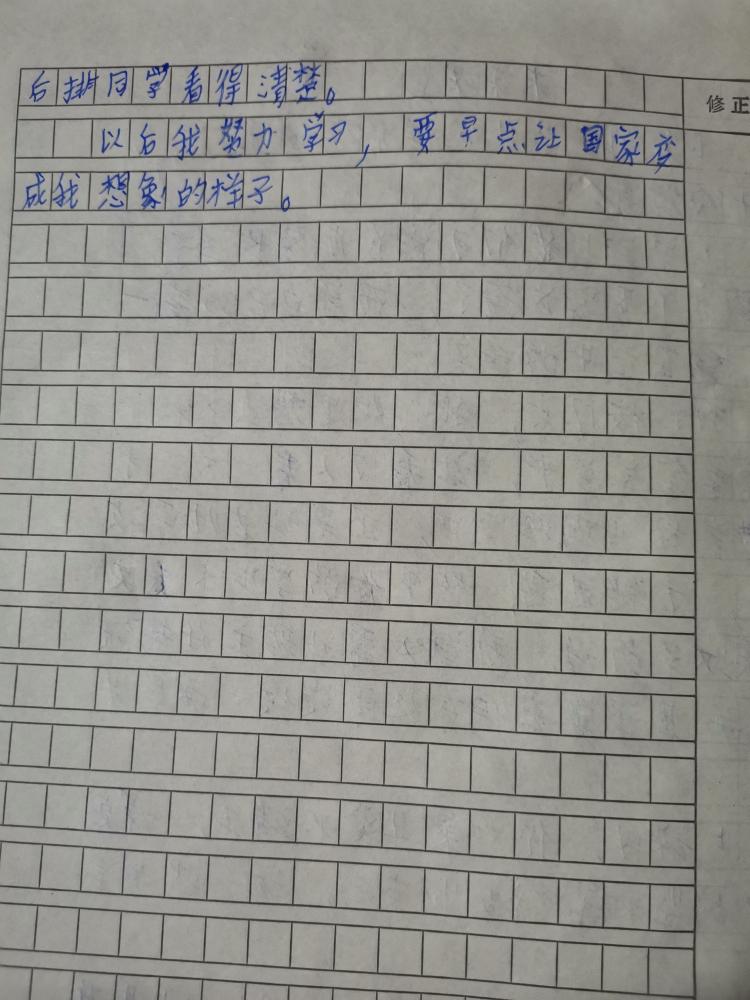 后排同学看得清楚。
修正
以后我努力学习，要早点让国家变
成我想象的样子。